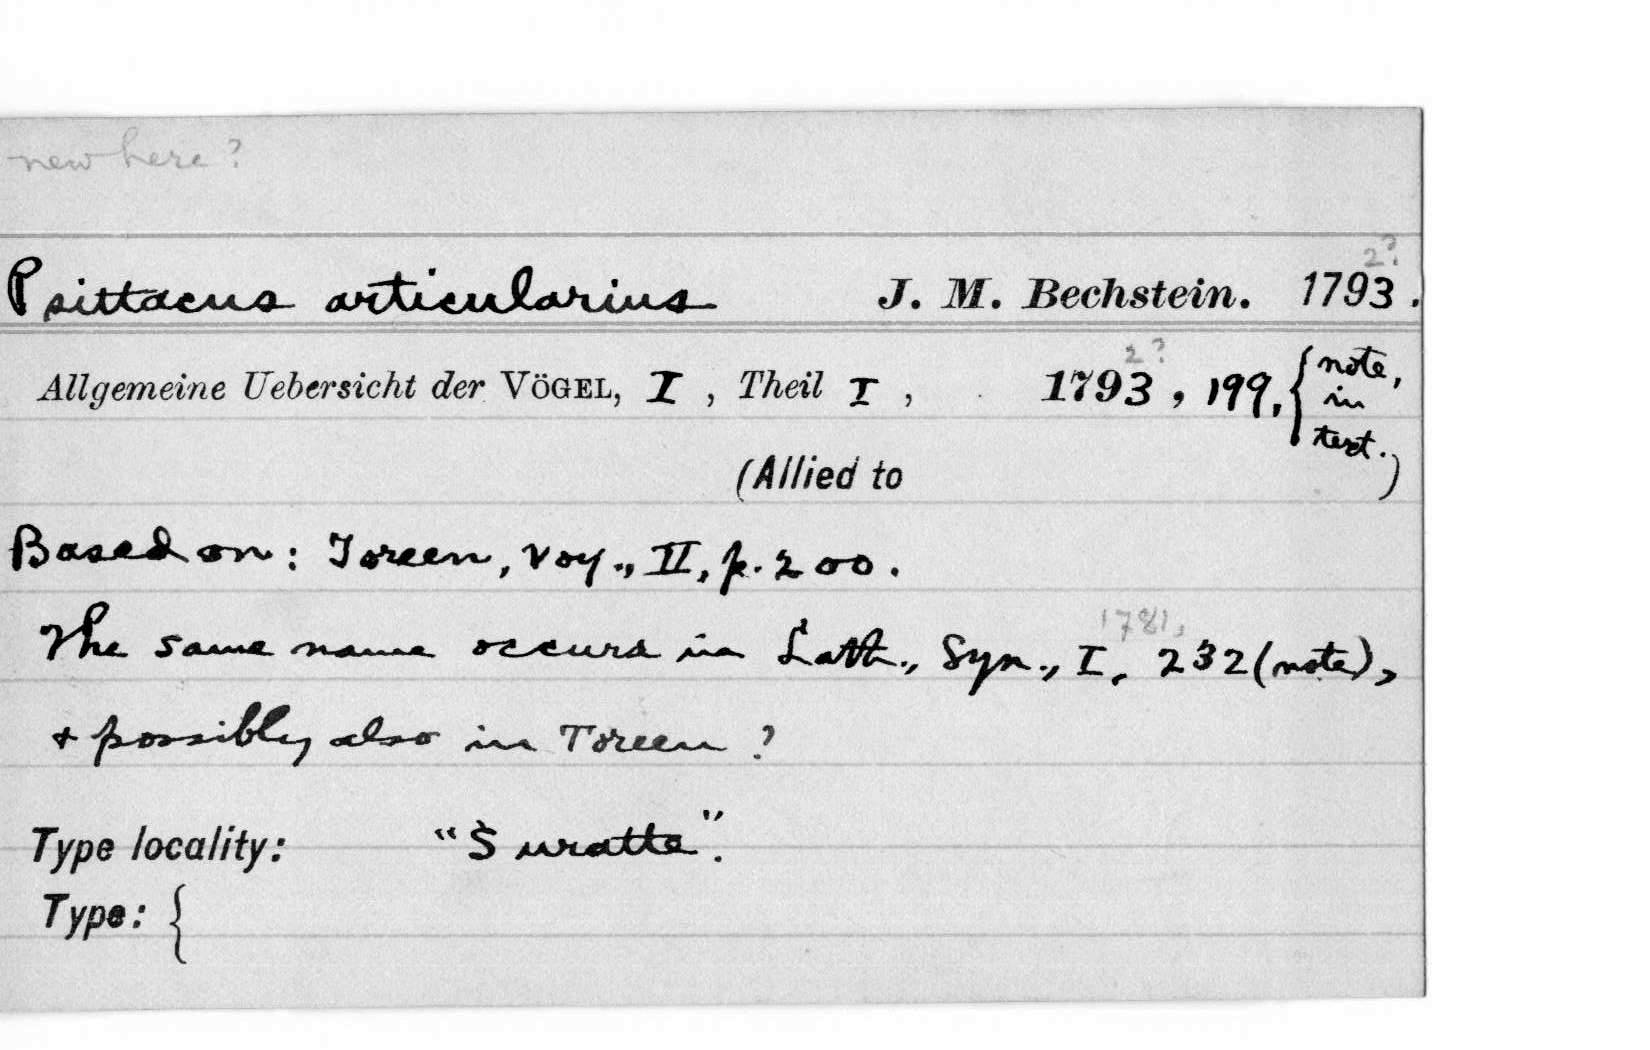 new here?
2?
Psittacus articularius J. M. Bechstein. 1793.
2?
Allgemeine Uebersicht der VÖGEL, I, Theil I, 1793, 199, { note, in text.
(Allied to )
Based on: Toreen, Voy., II, p. 200.
1781,
The same name occurs in Lath., Syn., I, 232 (note),
+ possibly also in Toreen?
Type locality: "Suratte".
Type: {